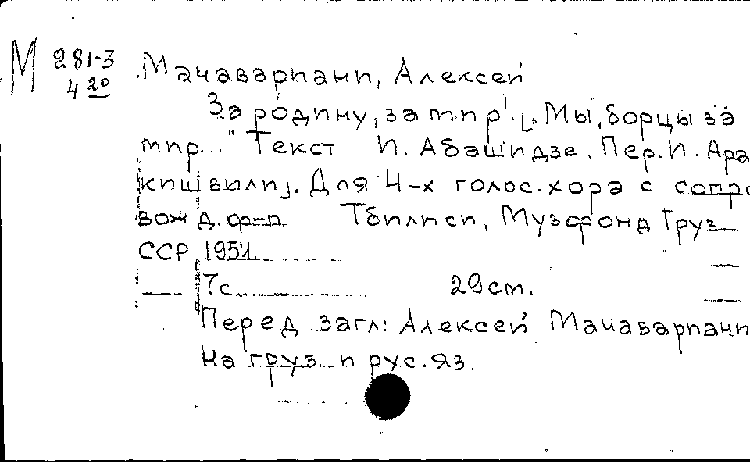 М 281-3
4 20
Мачавариани, Алексей
За родину, за мир! [Мы, борцы за
мир..." Текст И. Абашидзе. Пер. И. Ара
кишвили]. Для 4-х голос. хора с сопро
вожд. ф-п. Тбилиси, Музфонд Груз
ССР 1951
7с. 29 см.
Перед загл: Алексей Мачавариани
На груз и рус. яз.